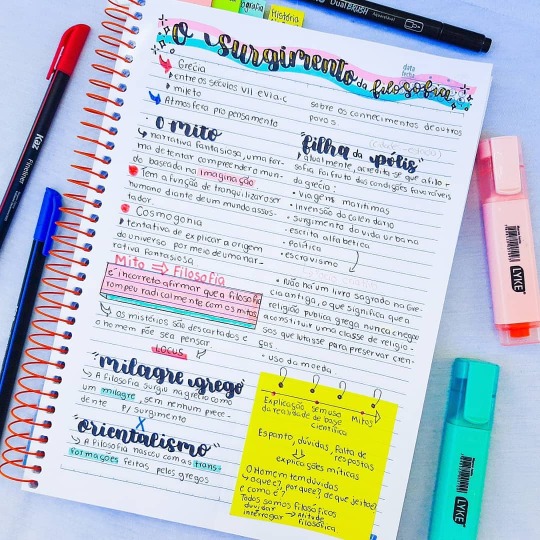 O surgimento da filosofia
data
Grécia
entre os séculos VII e VI a.c
mileto
Atmosfera pro pensamento
O mito
narrativa fantasiosa, uma for-
ma de tentar compreender o mun-
do baseada na imaginação
Tem a função de tranquilizar o ser
humano diante de um mundo assus-
tador
Cosmogonia
tentativa de explicar a origem
do universo por meio de uma nar-
rativa fantasiosa
Mito → Filosofia
é incorreto afirmar que a filosofia
rompeu radicalmente com os mitos
↳ os mistérios são descartados e
o homem põe seu pensar
LOCUS
"milagre grego"
↳ A filosofia surgiu na grécia como
um milagre, sem nenhum prece-
dente p/ surgimento
X
"orientalismo"
↳ A filosofia nasceu com as trans-
formações feitas pelos gregos
sobre os conhecimentos de outros
povos
"filha da pólis"
atualmente, acredita-se que a filo-
sofia foi fruto das condições favoráveis
da grécia:
• viagens marítimas
• invensão do calendário
• surgimento da vida urbana
• escrita alfabética
• política
• escravismo
• Não há um livro sagrado na Gré-
cia antiga, o que significa que a
religião pública grega nunca chegou
a constituir uma classe de religio-
sos que lutasse para preservar cren-
ças.
• uso da moeda
Explicação
da realidade de base
científica
Mitos
Espanto, dúvidas, falta de
respostas
⇓
explicações míticas
O Homem tem dúvidas
↳ o que é?, por que é? de que jeito é?
e como é?
Todos somos filosóficos
duvidar → Atitude
interrogar filosófica
História
Dual BRUSH
Kaz
Fineliner
LYKE
LYKE